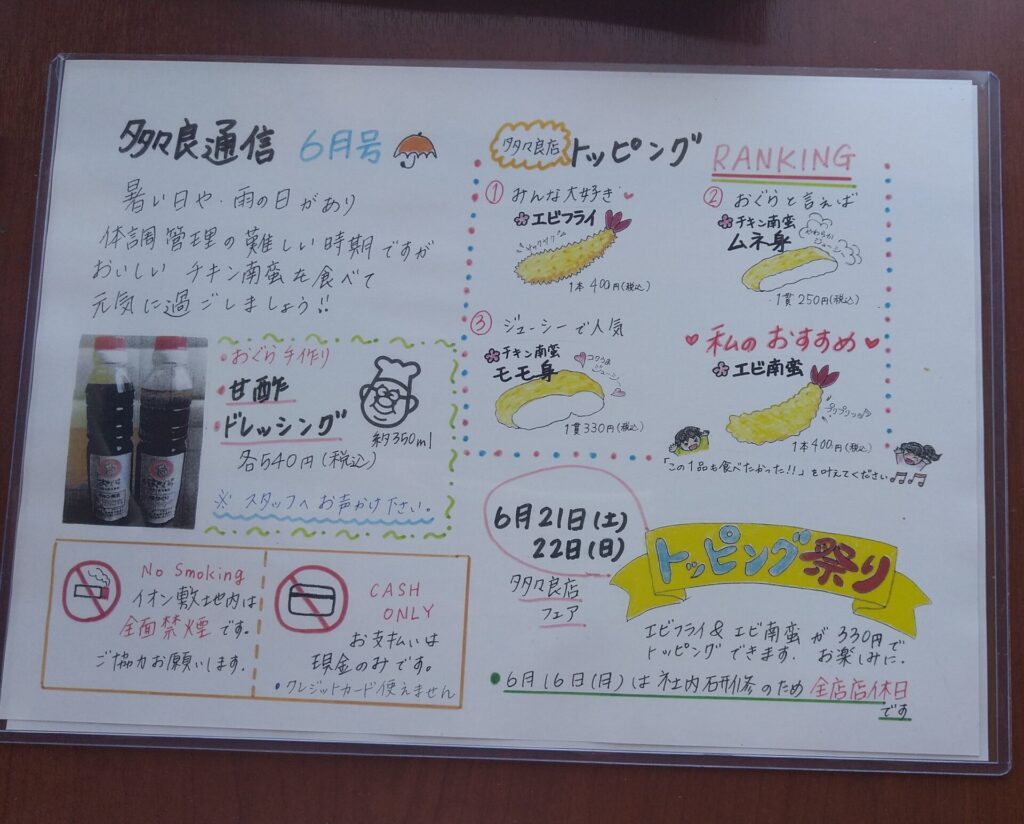 多々良通信 6月号
暑い日や、雨の日があり
体調管理の難しい時期ですが
おいしい チキン南蛮を食べて
元気に過ごしましょう!!
・おぐら手作り
・甘酢
・ドレッシング
約350ml
各540円(税込)
※ スタッフへお声かけ下さい。
No Smoking
イオン敷地内は
全面禁煙です。
ご協力お願いします。
CASH
ONLY
お支払いは
現金のみです。
・クレジットカード使えません
多々良店 トッピング RANKING
① みんな大好き
エビフライ
サックサク
1本400円(税込)
② おぐらと言えば
チキン南蛮
ムネ身
やわらか
ジューシー
1貫250円(税込)
③ ジューシーで人気
チキン南蛮
モモ身
コクうま
ジューシー
1貫330円(税込)
私のおすすめ
エビ南蛮
プリプリッ
1本400円(税込)
「この1品も食べたかった!!」を叶えてください♫♫
6月21日(土)
22日(日)
多々良店
フェア
トッピング祭り
エビフライ&エビ南蛮が330円で
トッピングできます. お楽しみに.
・6月16日(月)は社内研修のため全店店休日
です